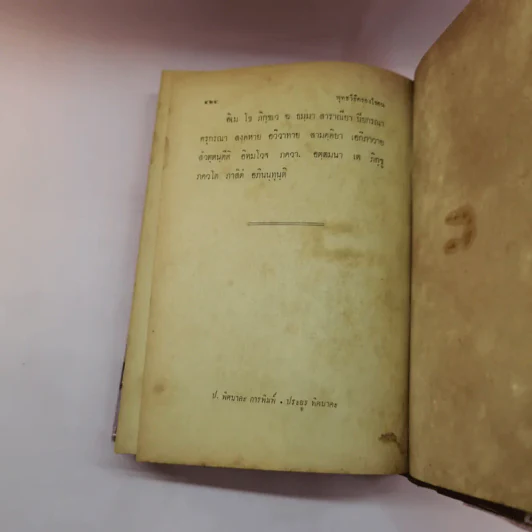 อิเม โข ภิกฺขเว ฉ ธมฺมา สาราณียา ปิยกรณา
ครุกรณา สงฺคหาย อวิวาทาย สามคฺคิยา เอกีภาวาย
สํวตฺตนฺตีติ อิทมโวจ ภควา. อตฺตมนา เต ภิกฺขู
ภควโต ภาสิตํ อภินนฺทุนฺติ
ป. พิศนาคะ การพิมพ์ • ประยูร พิศนาคะ